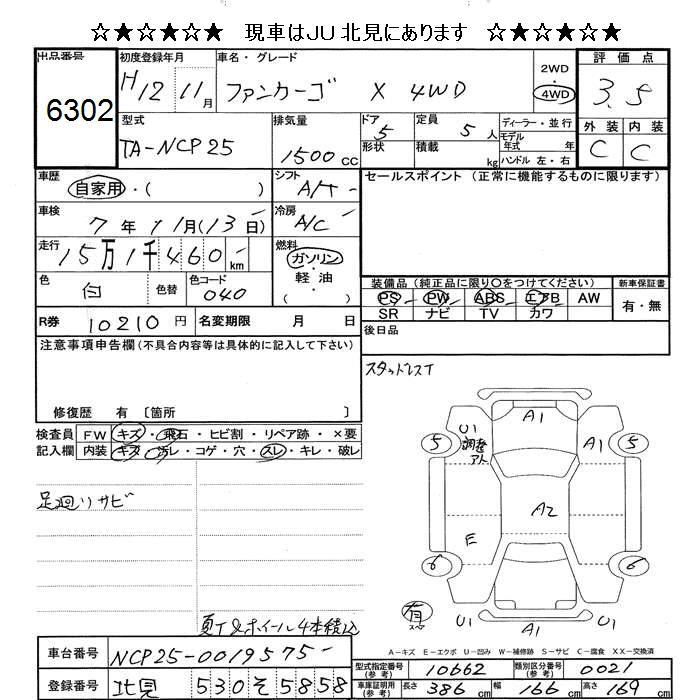 ☆★☆★☆★ 現車はJU北見にあります ☆★☆★☆★
出品番号 初度登録年月 車名・グレード 2WD 4WD 評価点
6302 H12 11月 ファンカーゴ X 4WD 3.5
型式 排気量 ドア 定員 ディーラー・並行 外装 内装
TA-NCP25 1500cc 5 5人 モデル年式 年 C C
形状 積載 kg ハンドル 左・右
車歴 シフト セールスポイント (正常に機能するものに限ります)
自家用・( ) A/T
車検 冷房
7年11月(13日) A/C
走行 燃料
15万1千460km ガソリン・軽油
色 色替 色コード ( )
白 040
装備品 (純正品に限り○をつけてください) 新車保証書
PS PW ABS エアB AW 有・無
SR ナビ TV カワ
R券 10210円 名変期限 月 日 後日品
注意事項申告欄(不具合内容等は具体的に記入して下さい)
スタッドレスT
修復歴 有 〔箇所 〕
検査員 FW キズ・飛石・ヒビ割・リペア跡・×要
記入欄 内装 キズ・汚レ・コゲ・穴・スレ・キレ・破レ
A1
5 U1 調整アト A1 5
足廻リサビ
A2
E
6 6
有 スペア
夏T&ホイール4本積込
U1 A1 U1
A-キズ E-エクボ U-凹み W-補修跡 S-サビ C-腐食 XX-交換済
車台番号 NCP25-0019575
型式指定番号(参考) 10662 類別区分番号(参考) 0021
登録番号 北見 530 そ 5858
車庫証明用(参考) 長さ 386cm 幅 166cm 高さ 169cm